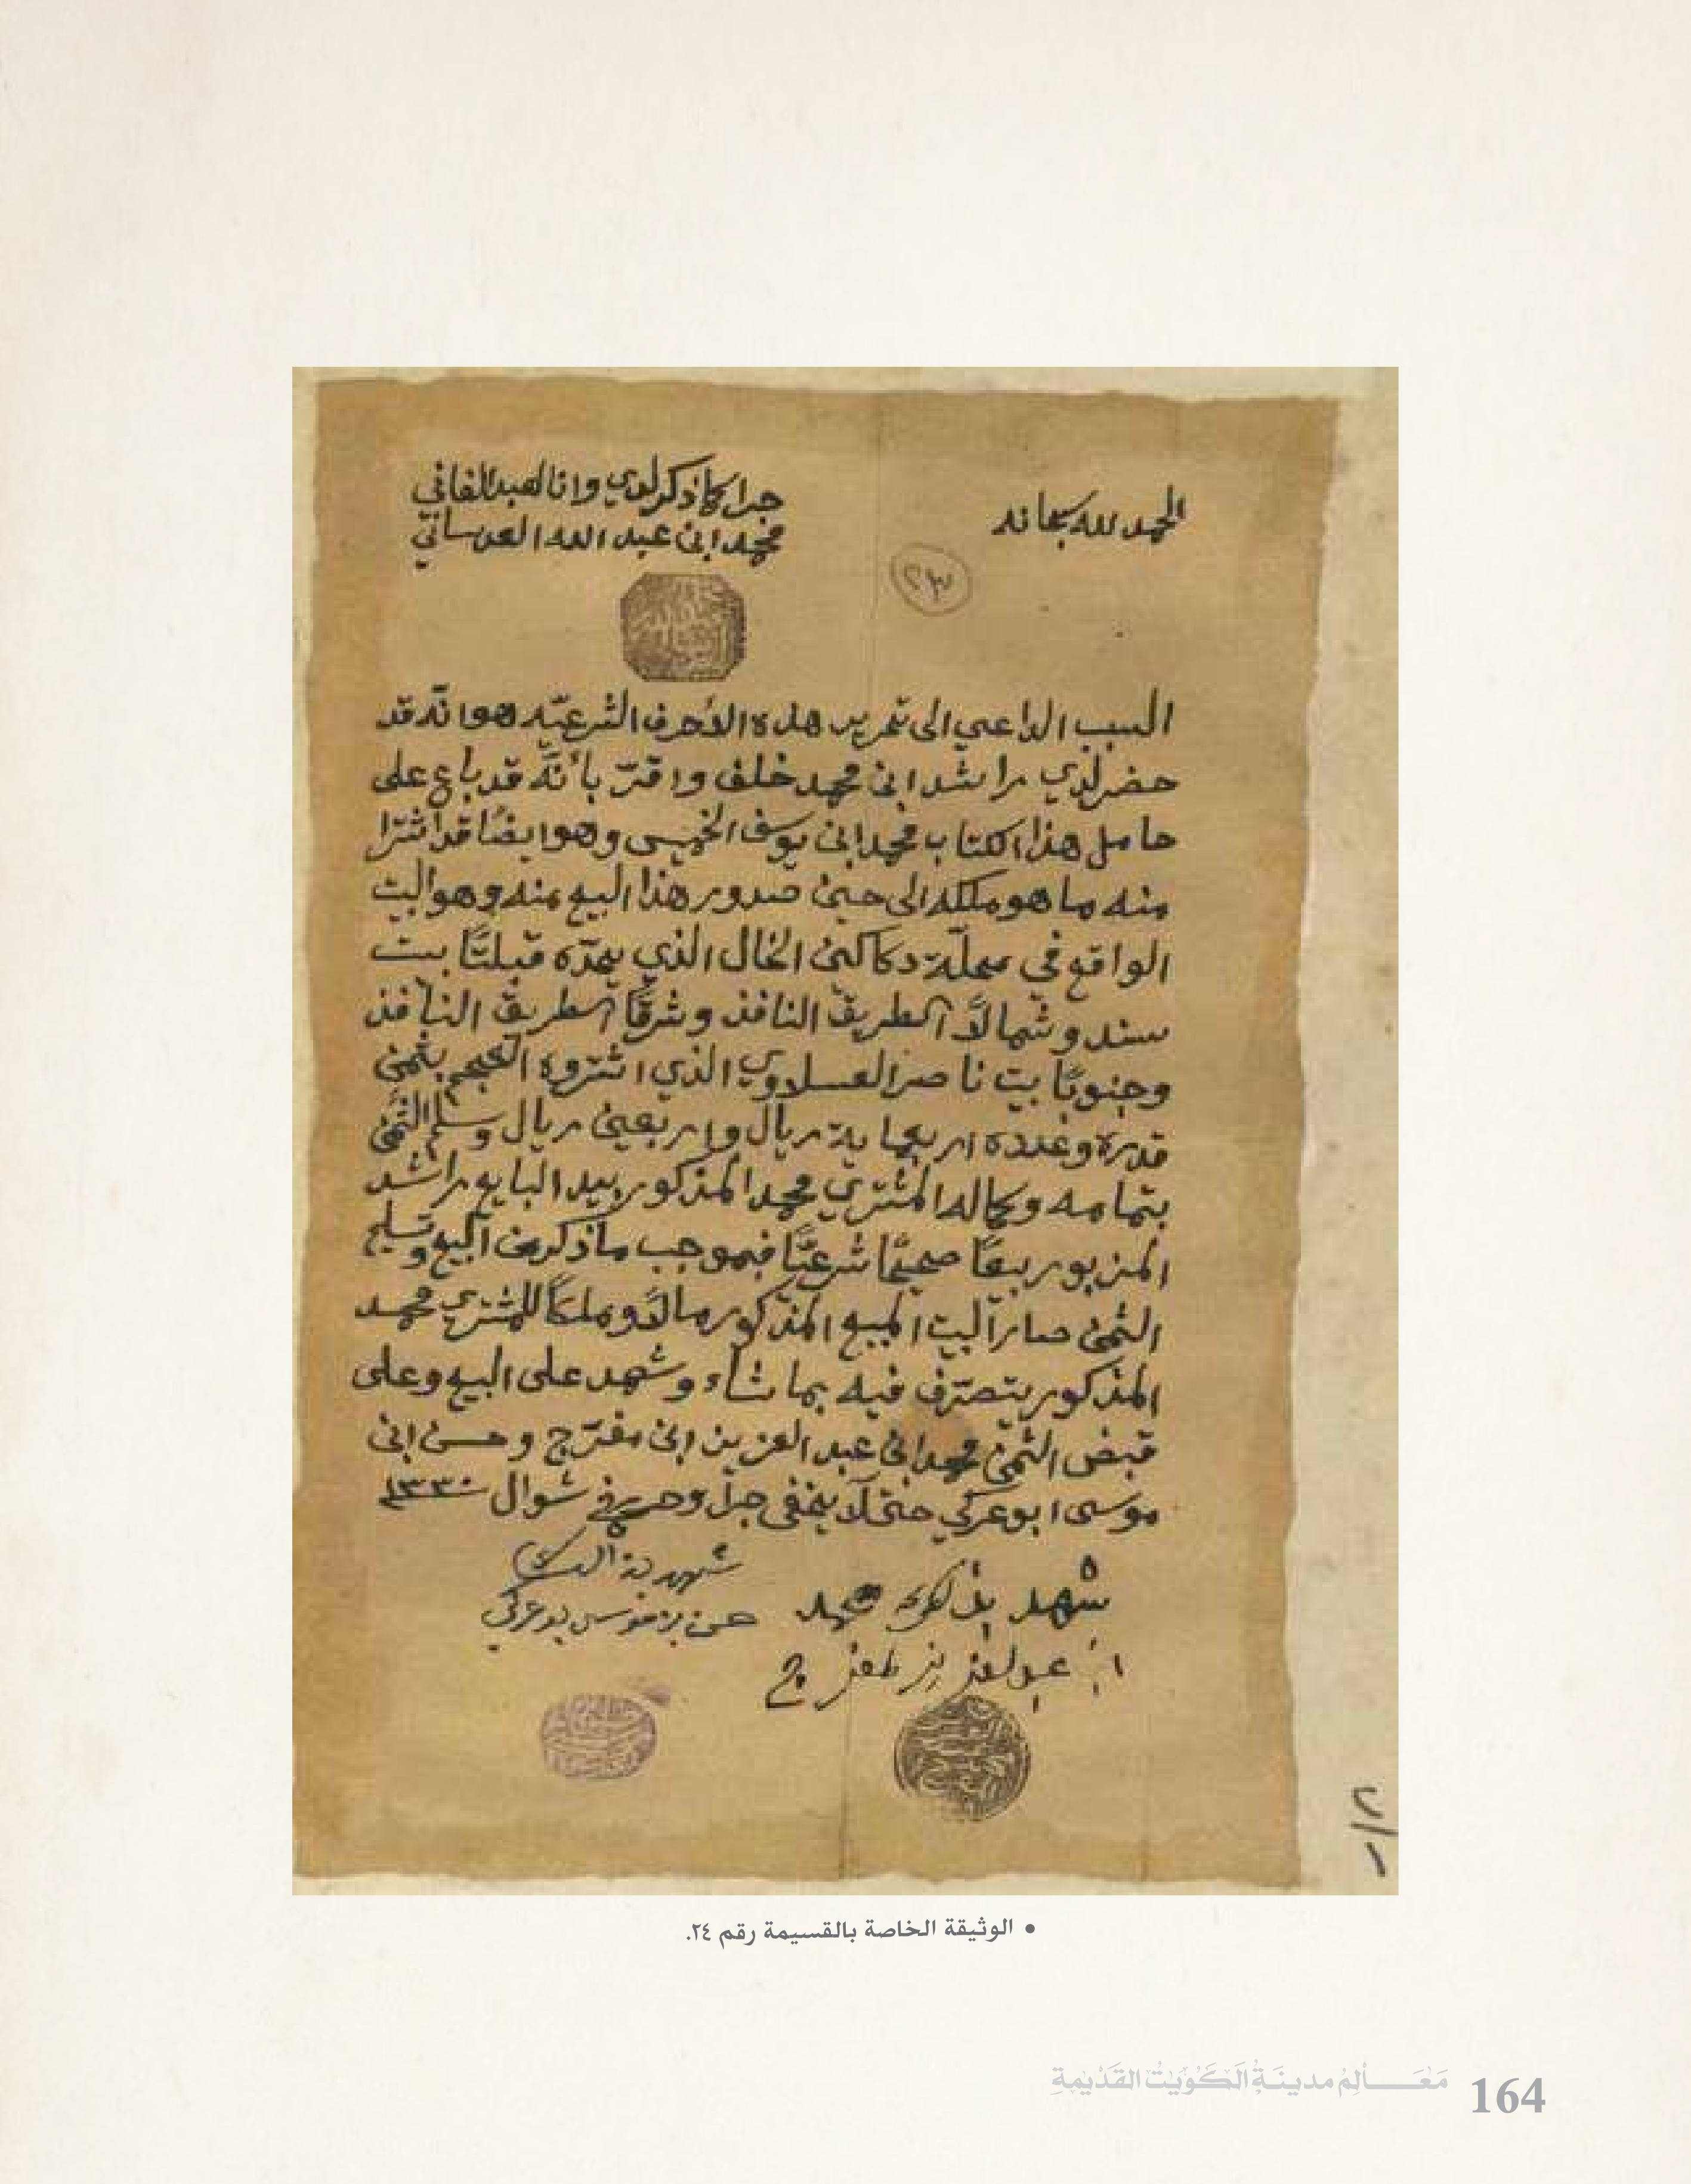 الحمد لله سبحانه
جرا كما ذكر لدي وانا العبد الفاني
محمد ابن عبد الله العدساني
٢٣
السبب الداعي الى تحرير هذه الأحرف الشرعيّه هو انّه قد
حضر لدي راشد ابن محمد خلف واقرّ بأنّه قد باع على
حامل هذا الكتاب محمد ابن يوسف الخميس وهو ايضًا قد اشترا
منه ما هو ملكه الى حين صدور هذا البيع منه وهو البيت
الواقع في محلّة دكاكين الخال الذي يحدّه قبلتًا بيت
سند وشمالًا الطريق النافذ وشرقًا الطريق النافذ
وجنوبًا بيت ناصر العسلاوي الذي اشتروه العجم بثمن
قدره وعدده اربعماية ريال واربعين ريال وسلم الثمن
بتمامه وكماله المشتري محمد المذكور بيد البايع راشد
المزبور بيعًا صحيحًا شرعيًّا فبموجب ما ذكر من البيع وتسليم
الثمن صار البيت المبيع المذكور مالًا وملكًا للمشتري محمد
المذكور يتصرّف فيه بما شاء وشهد على البيع وعلى
قبض الثمن محمد ابن عبد العزيز ابن مفرّج وحسن ابن
موسى ابو عركي حتى لا يخفى جرا وحرر في شوال ١٣٣٠
شهد بذلك محمد
ابن عبد العزيز المفرج
شهد بذالك
حسن بن موسى بو عركي
٢/١
• الوثيقة الخاصة بالقسيمة رقم ٢٤.
مَعَـــالِمُ مدينَةُ الكُوَيْتُ القَدْيمةِ 164